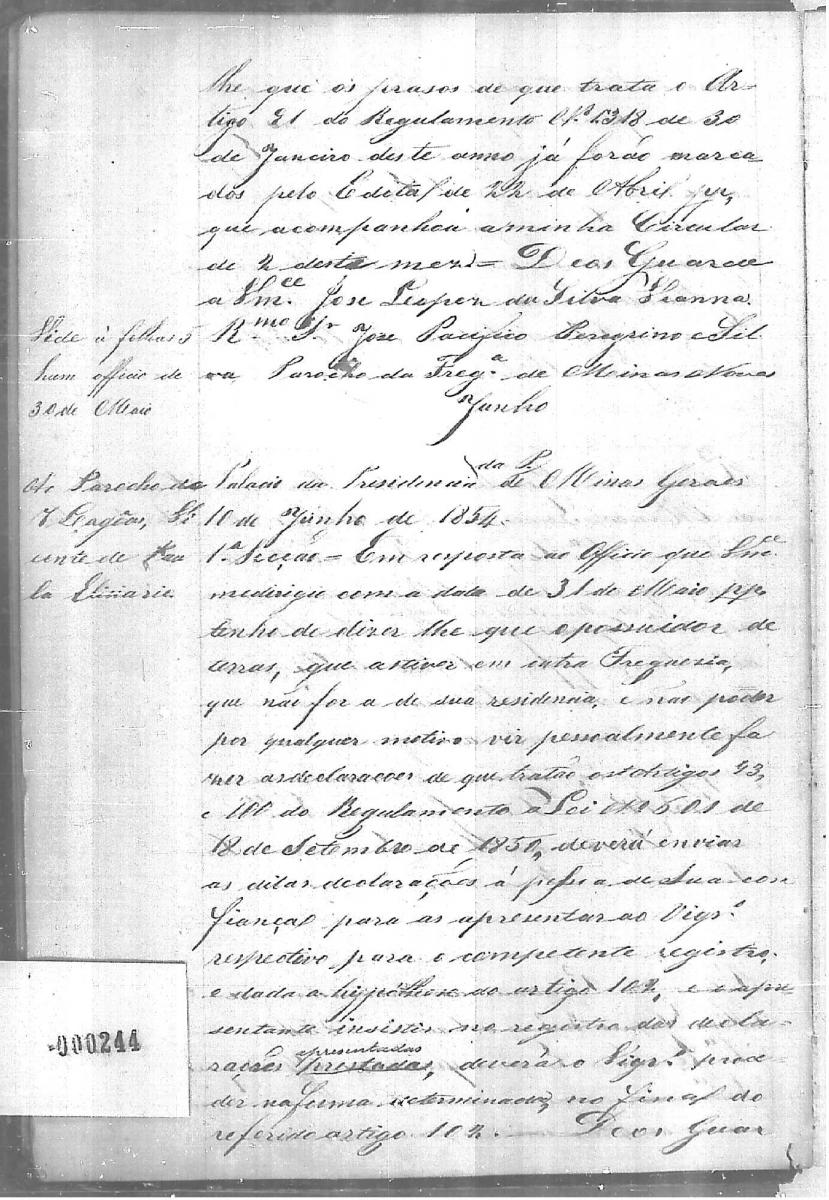 lhe que os prasos de que trata o Ar-
tigo 91 do Regulamento Nº 1318 de 30
de Janeiro deste anno já forão marca
dos pelo Edital de 22 de Abril
que acompanhou a minha Circular
de 2 deste mez = Deos Guarde
a Vmce. Jose Lopes da Silva Vianna
Rmo Sr Jose Pacifico Peregrino e Sil
va Parocho da Frega de Minas Novas
Vide á folhas 5
hum officio de
30 de Maio
Junho
Ao Parocho de
7 Lagôas, Vi
cente de Pau
la
Palacio da Presidencia da P. de Minas Geraes
10 de Junho de 1854.
1ª Secção = Em resposta ao Officio que Vmce
me dirigio com a data de 31 de Maio pp.
tenho de dizer lhe que o possuidor de
terras, que estiver em outra Freguesia,
que não for a de sua residencia, e não poder
por qualquer motivo vir pessoalmente fa
zer as declaraçoes de que tratão os Artigos 93,
e 100 do Regulamento a Lei Nº 601 de
18 de Setembro de 1850, deverá enviar
as ditas declarações á pessoa de sua con
fiança para as apresentar ao Vigrº
respectivo para o competente registro,
e dada a hypothese do artigo 102, e o apre
sentante insistir no registro das decla-
rações apresentadas prestadas, deverá o Vigrº proce-
der na forma determinada, no final do
referido artigo 102. — Deos Guar
-000244